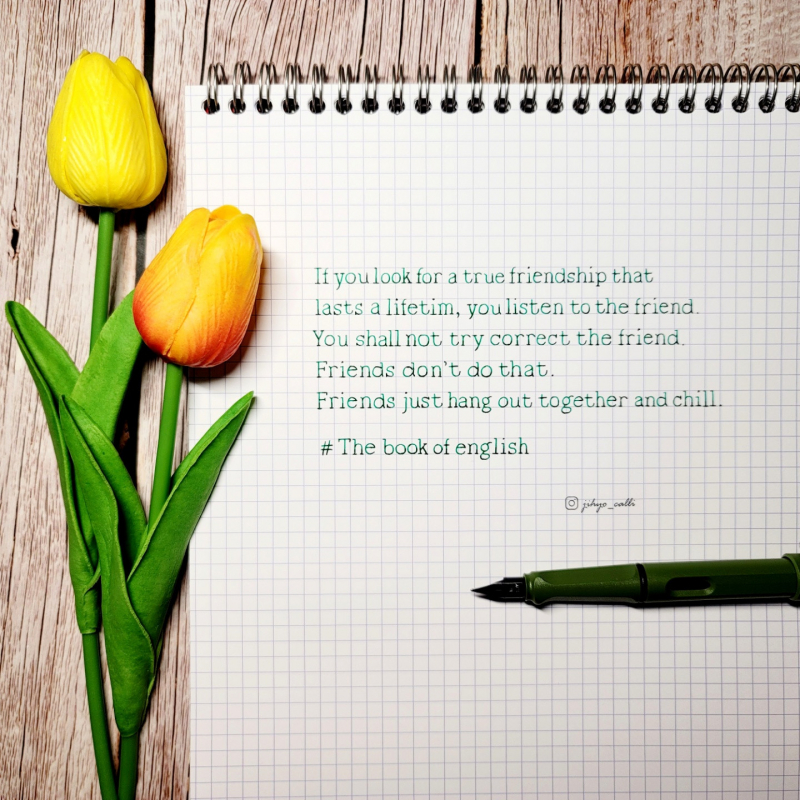 If you look for a true friendship that
lasts a lifetim, you listen to the friend.
You shall not try correct the friend.
Friends don't do that.
Friends just hang out together and chill.
# The book of english
jihyo_calli